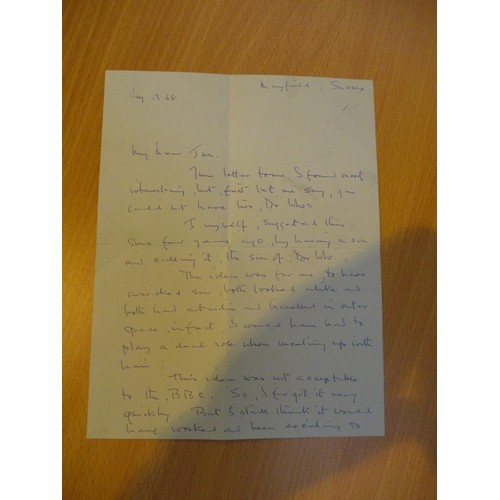 Mayfield, Sussex
Aug. 13. 68
My Dear Ian.
Your letter to me I found most
interesting, but first let me say, you
could not have two, Dr Whos.
I myself, suggested this
some four years ago, by having a son
and calling it, the son of, Dr Who.
The idea was for me to have
a wicked son, both looked alike and
both had and travelled in outer
space, in fact, I would have had to
play a dual role when meeting up with
him.
This idea was not acceptable
to the, B.B.C. So, I forgot it very
quickly. But I still think it would
have worked and been exciting to